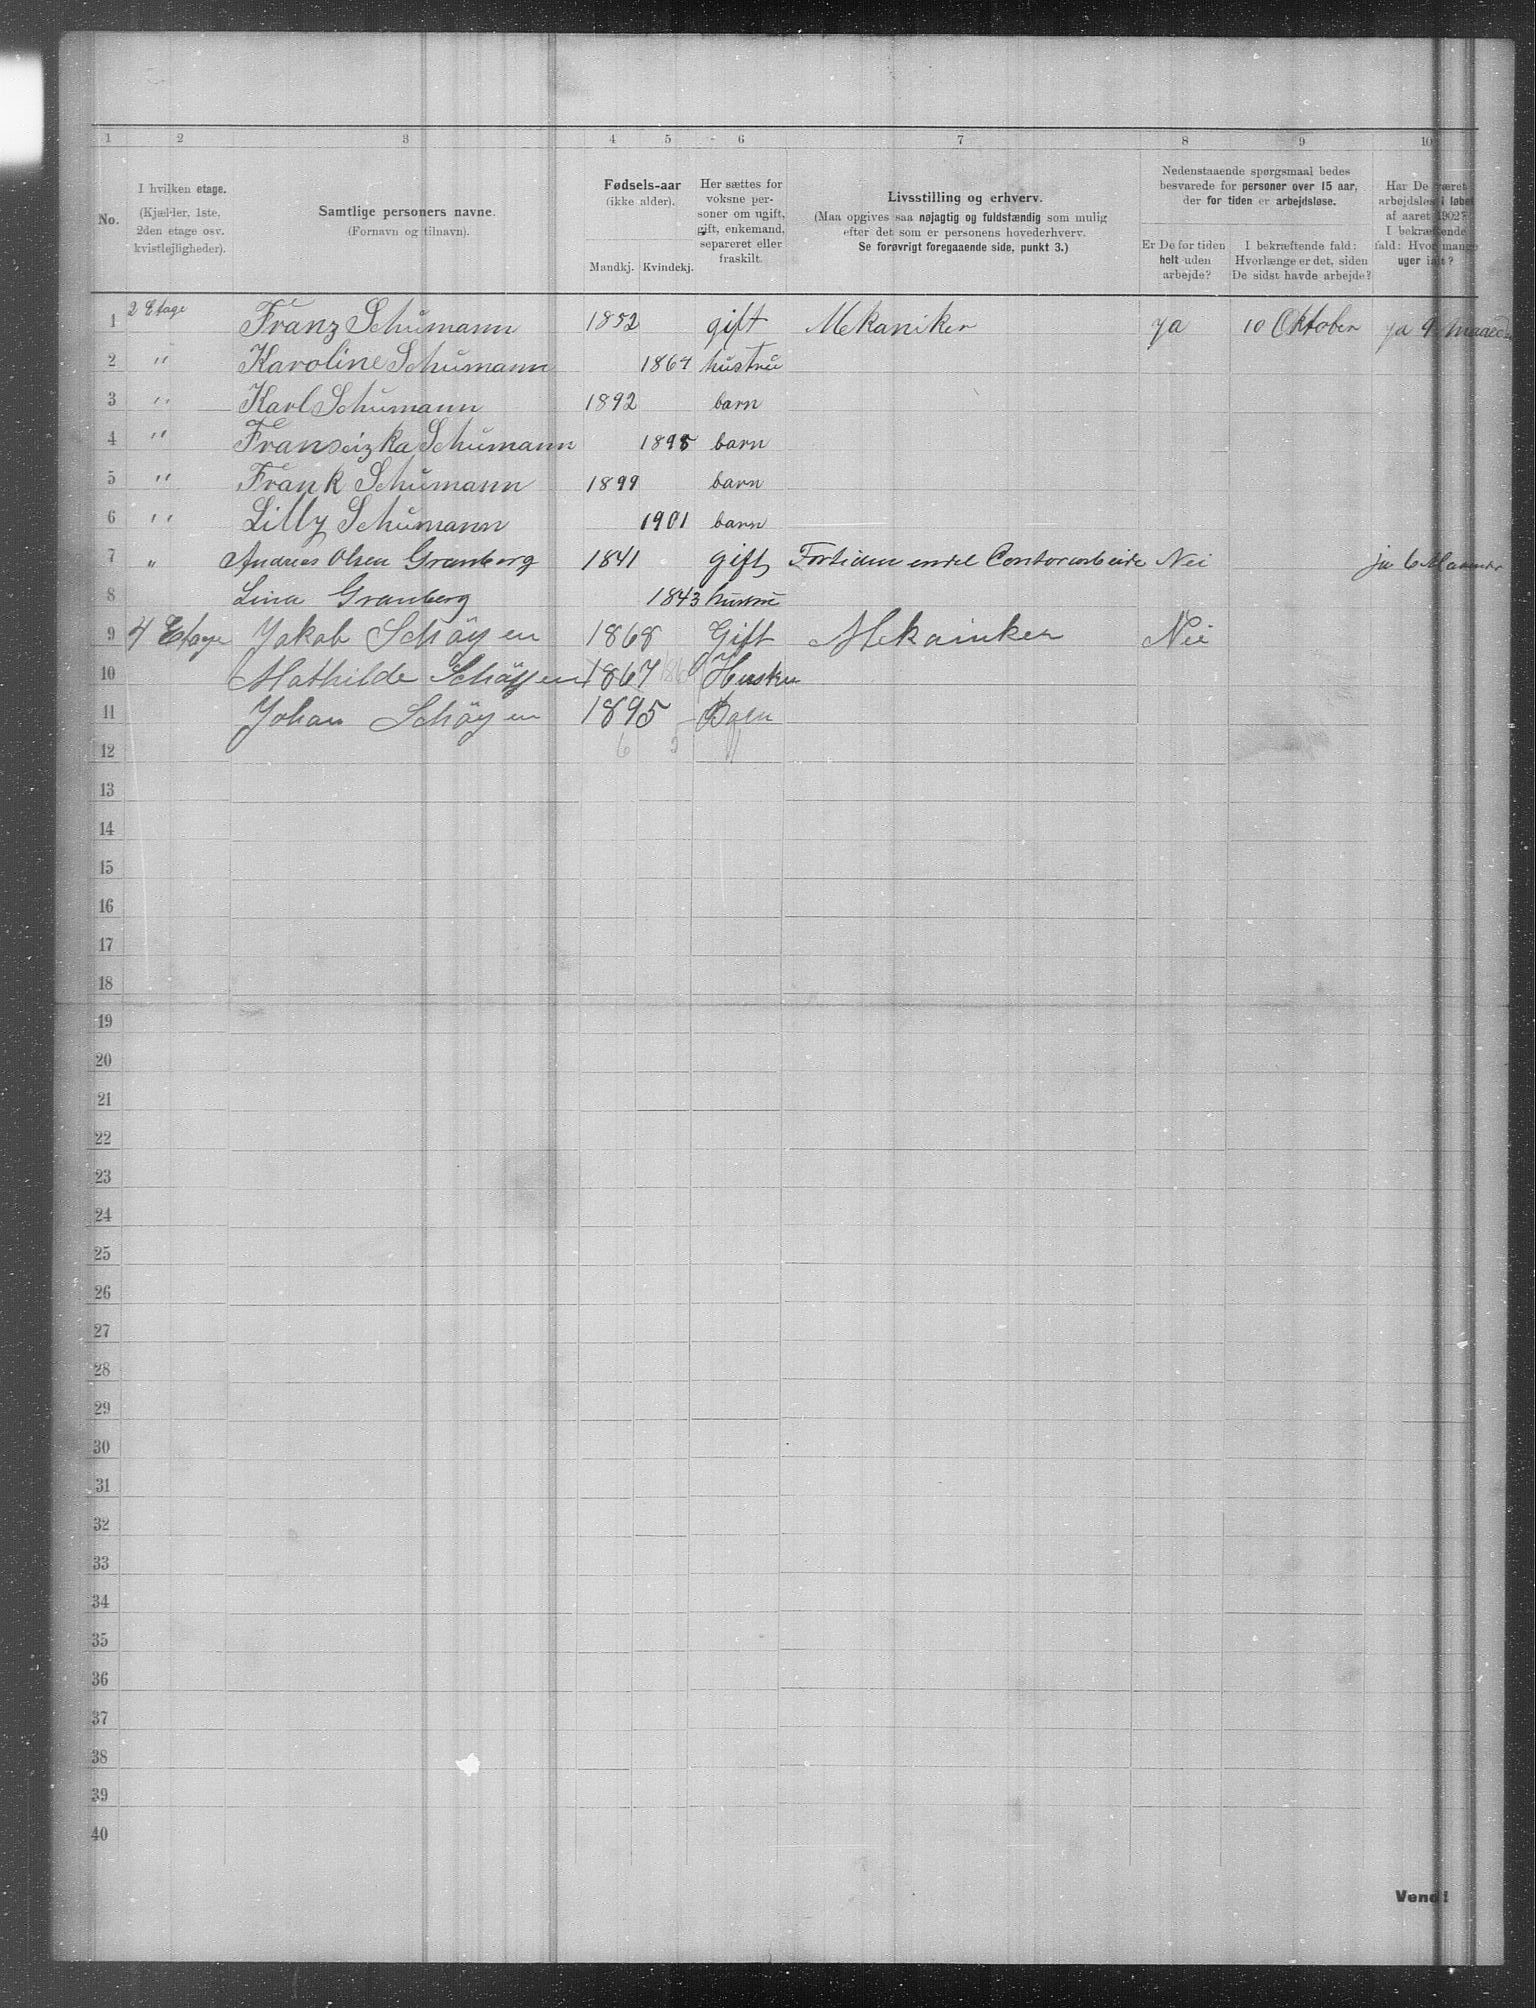 1 2 3 4 5 6 7 8 9 10
No.
I hvilken etage.
(Kjæl-ler, 1ste,
2den etage osv.
kvistlejligheder).
Samtlige personers navne.
(Fornavn og tilnavn).
Fødsels-aar
(ikke alder).
Mandkj. Kvindekj.
Her sættes for
voksne per-
soner om ugift,
gift, enkemand,
separeret eller
fraskilt.
Livsstilling og erhverv.
(Maa opgives saa nøjagtig og fuldstændig som mulig
efter det som er personens hovederhverv.
Se forøvrigt foregaaende side, punkt 3.)
Nedenstaaende spørgsmaal bedes
besvarede for personer over 15 aar,
der for tiden er arbejdsløse.
Er De for tiden
helt uden
arbejde?
I bekræftende fald:
Hvorlænge er det, siden
De sidst havde arbejde?
Har De været
arbejdsløs i løbet
af aaret 1902?
I bekræftende
fald: Hvor mange
uger ialt?
1 2 Etage Franz Schumann 1852 gift Mekaniker ja 10 Oktober ja 9 maaed
2 " Karoline Schumann 1864 hustru
3 " Karl Schumann 1892 barn
4 " Fransizka Schumann 1895 barn
5 " Frank Schumann 1899 barn
6 " Lilly Schumann 1901 barn
7 " Andreas Olsen Granberg 1841 gift Fortiden endel Contorarbeide Nei ja 6 Maaneder
8 Lina Granberg 1843 hustru
9 4 Etage Jakob Schöyen 1868 Gift Mekainker Nei
10 Mathilde Schöyen 1867 Hustru
11 Johan Schöyen 1895 Barn
12 6 5
13
14
15
16
17
18
19
20
21
22
23
24
25
26
27
28
29
30
31
32
33
34
35
36
37
38
39
40
Vend!